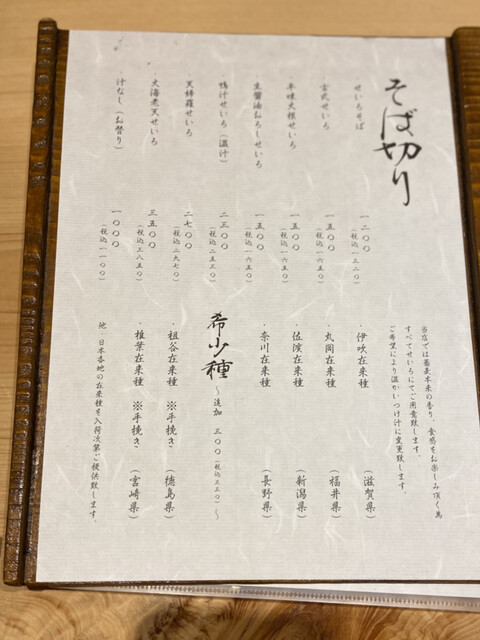 そば切り
当店では蕎麦本来の香り、食感をお楽しみ頂く為
すべてせいろにてご用意致します。
ご希望により温かいつけ汁に変更致します。
せいろそば 一二〇〇
(税込一三二〇)
せいろ 一五〇〇
(税込一六五〇)
辛味大根せいろ 一五〇〇
(税込一六五〇)
生醤油おろしせいろ 一五〇〇
(税込一六五〇)
鴨汁せいろ(温汁) 二三〇〇
(税込二五三〇)
天婦羅せいろ 二七〇〇
(税込二九七〇)
大海老天せいろ 三五〇〇
(税込三八五〇)
汁なし(お替り) 一〇〇〇
(税込一一〇〇)
・伊吹在来種 (滋賀県)
・丸岡在来種 (福井県)
・佐渡在来種 (新潟県)
・奈川在来種 (長野県)
希少種 〜追加 三〇〇(税込三三〇)〜
・祖谷在来種 ※手挽き (徳島県)
・椎葉在来種 ※手挽き (宮崎県)
他、日本各地の在来種を入荷次第ご提供致します。